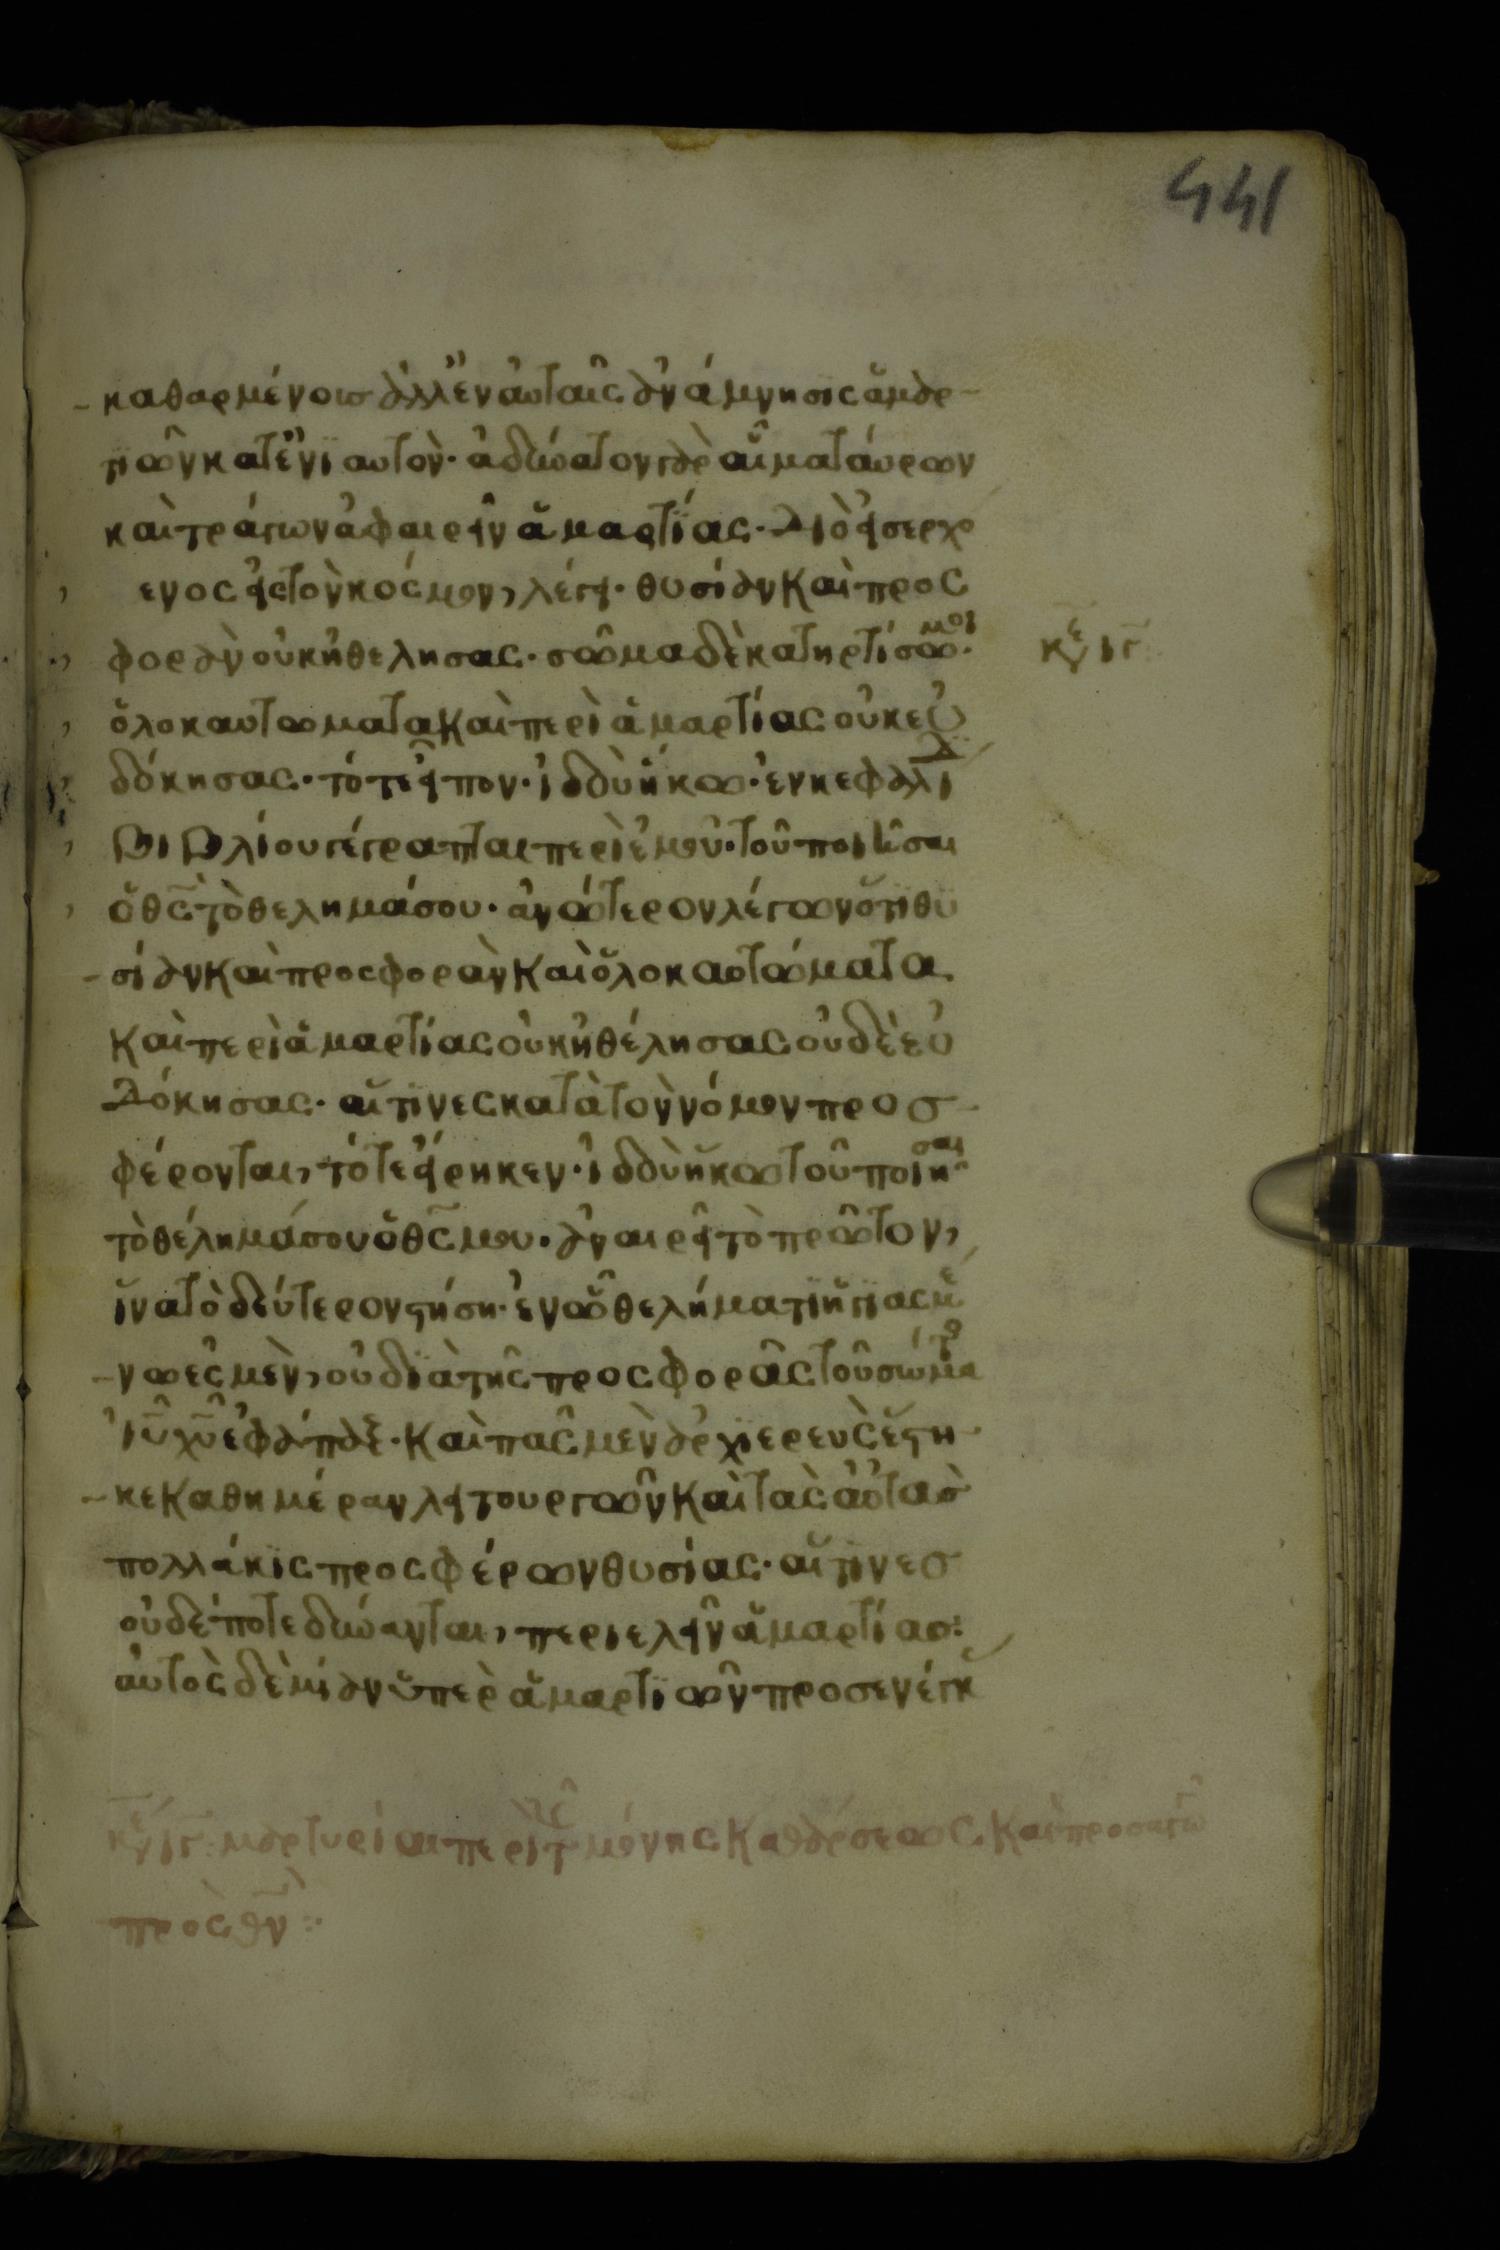 441
καθαρμένοισ ἀλλ' ἐν αὐταῖς ἀνάμνησις ἁμαρ-
τιῶν κατ' ἐνιαυτόν· ἀδύνατον γὰρ αἷμα ταύρων
καὶ τράγων ἀφαιρεῖν ἁμαρτίας· Διὸ εἰσερχο
ενος εἰς τὸν κόσμον, λέγει· θυσίαν καὶ προς
φορὰν οὐκ ἠθέλησας· σῶμα δὲ κατηρτίσω μοι·
κεφ ιγ
ὁλοκαυτώματα καὶ περὶ ἁμαρτίας οὐκ εὐ
δόκησας· τότε εἶπον· ἰδοὺ ἥκω· ἐν κεφαλίδι
βιβλίου γέγραπται περὶ ἐμοῦ· τοῦ ποιῆσαι
ὁ θς τὸ θέλημά σου· ἀνώτερον λέγων ὅτι θυ
σίαν καὶ προσφορὰν καὶ ὁλοκαυτώματα
καὶ περὶ ἁμαρτίας οὐκ ἠθέλησας οὐδὲ εὐ
δόκησας· αἵτινες κατὰ τὸν νόμον προσ
φέρονται, τότε εἴρηκεν· ἰδοὺ ἥκω τοῦ ποιῆσαι
τὸ θέλημά σου ὁ θς μου· ἀναιρεῖ τὸ πρῶτον,
ἵνα τὸ δεύτερον στήση· ἐν ὧ θελήματι ἡγιασμέ
νοι ἐσμὲν, οἱ διὰ τῆς προσφορᾶς τοῦ σώματο
ἰυ χυ ἐφάπαξ· καὶ πᾶς μὲν ἀρχιερεὺς ἕστη
κε καθημέραν λειτουργῶν καὶ τὰς αὐτὰσ
πολλάκις προσφέρων θυσίας· αἵτινεσ
οὐδέποτε δύνανται, περιελεῖν ἁμαρτίασ:
αὐτὸς δὲ μίαν ὑπὲρ ἁμαρτιῶν προσενέγκ
κεφ ιγ μαρτυρίαι περὶ τῆς μόνης καθάρσεως καὶ προσαγω
πρὸς θν:·